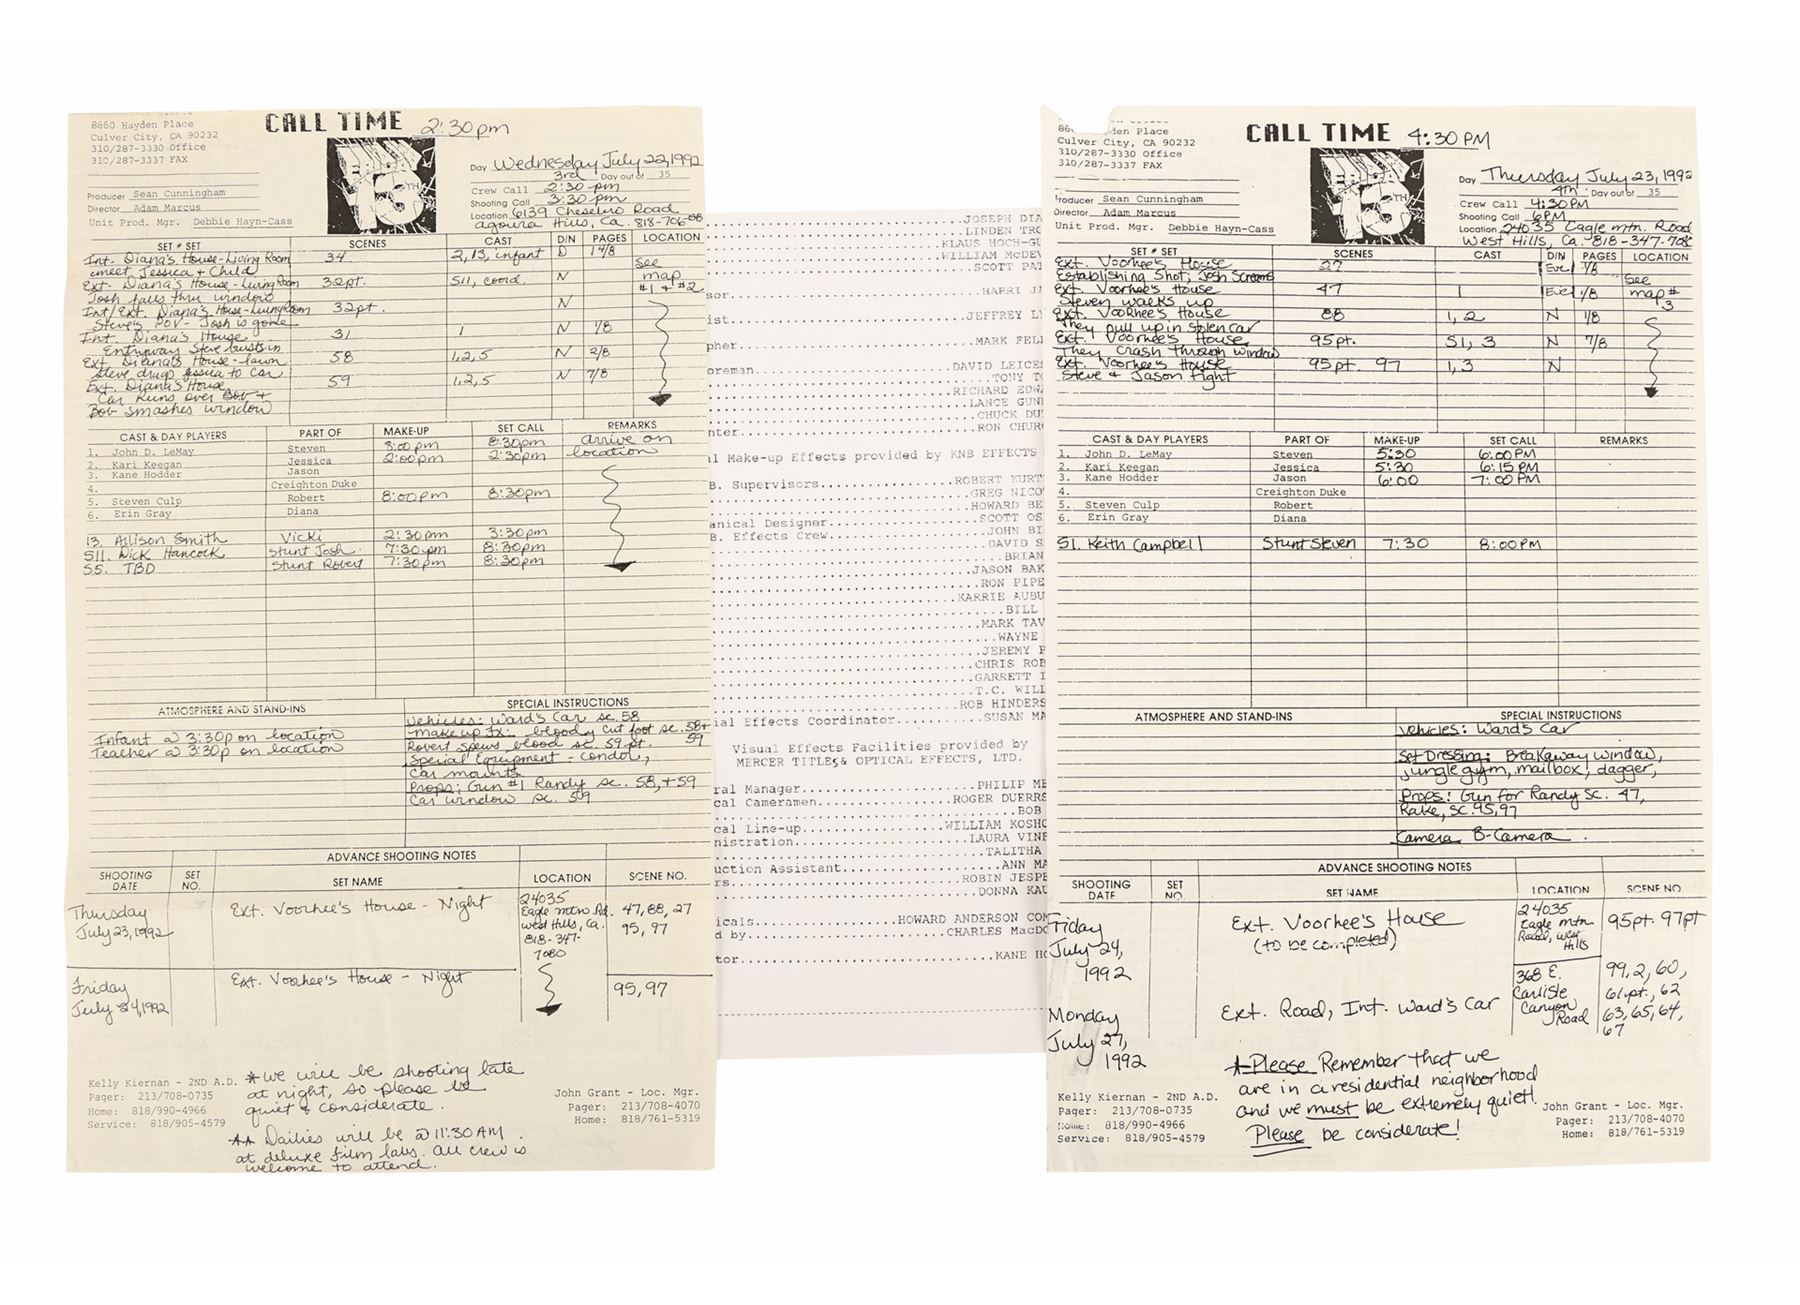 8660 Hayden Place
Culver City, CA 90232
310/287-3330 Office
310/287-3337 FAX
CALL TIME 2:30pm
13TH
Producer Sean Cunningham
Director Adam Marcus
Unit Prod. Mgr. Debbie Hayn-Cass
Day Wednesday July 22, 1992
3rd Day out of 35
Crew Call 2:30 pm
Shooting Call 3:30 pm
Location 6139 Chesebro Road
Agoura Hills, Ca. 818-706-
SET # SET SCENES CAST D/N PAGES LOCATION
Int. Diana's House-Living Room 34 2, 13, infant D 1 4/8
meet Jessica + Child
Ext. Diana's House-Living Room 32pt. S11, coord. N
See map #1 & #2
Josh falls thru window
Int/Ext. Diana's House-LivingRoom 32pt. N
Steve's POV - Josh is gone
Int. Diana's House 31 1 N 1/8
Entryway Steve busts in
Ext. Diana's House - lawn 58 1,2,5 N 2/8
Steve drags Jessica to Car
Ext. Diana's House 59 1,2,5 N 7/8
Car Runs over Bob +
Bob smashes window
CAST & DAY PLAYERS PART OF MAKE-UP SET CALL REMARKS
1. John D. LeMay Steven 8:00pm 8:30pm arrive on location
2. Kari Keegan Jessica 2:00pm 2:30pm
3. Kane Hodder Jason
4. Creighton Duke
5. Steven Culp Robert 8:00pm 8:30pm
6. Erin Gray Diana
13. Allison Smith Vicki 2:30pm 3:30pm
S11. Dick Hancock Stunt Josh 7:30pm 8:30pm
S5. TBD Stunt Robert 7:30pm 8:30pm
ATMOSPHERE AND STAND-INS SPECIAL INSTRUCTIONS
Infant @ 3:30p on location
Teacher @ 3:30p on location
Vehicles: Ward's Car sc. 58
Make up Fx: bloody cut foot sc. 58+59
Robert spews blood sc. 59pt.
Special Equipment - Condor,
Car mounts
Props: Gun #1 Randy sc. 58, +59
Car window sc. 59
ADVANCE SHOOTING NOTES
SHOOTING DATE SET NO. SET NAME LOCATION SCENE NO.
Thursday July 23, 1992 Ext. Voorhee's House - Night 24035 Eagle mtn. Rd. West Hills, Ca. 818-347-7080 47, 88, 27 95, 97
Friday July 24, 1992 Ext. Voorhee's House - Night 95, 97
Kelly Kiernan - 2ND A.D.
Pager: 213/708-0735
Home: 818/990-4966
Service: 818/905-4579
* We will be shooting late
at night, so please be
quiet & considerate.
** Dailies will be @ 11:30 AM.
at deluxe film labs. All crew is
welcome to attend.
John Grant - Loc. Mgr.
Pager: 213/708-4070
Home: 818/761-5319
JOSEPH DIA
LINDEN TRO
KLAUS HOCH-GU
WILLIAM McDEV
SCOTT PAT
sor HARRI J
ist JEFFREY L
pher MARK FELL
oreman DAVID LEICES
TONY T
RICHARD EDW
LANCE GUN
CHUCK DU
nter RON CHUR
l Make-up Effects provided by KNB EFFECTS
B. Supervisors ROBERT KURT
GREG NICO
HOWARD BE
anical Designer SCOTT OS
B. Effects Crew JOHN BI
DAVID S
BRIAN
JASON BAK
RON PIPE
KARRIE AUBU
BILL
MARK TAV
WAYNE
JEREMY P
CHRIS ROB
GARRETT I
T.C. WILL
ROB HINDERS
ial Effects Coordinator SUSAN MA
Visual Effects Facilities provided by
MERCER TITLES & OPTICAL EFFECTS, LTD.
ral Manager PHILIP ME
cal Cameramen ROGER DUERRS
BOB
cal Line-up WILLIAM KOSHO
nistration LAURA VINE
TALITHA
uction Assistant ANN MA
rs ROBIN JESPE
DONNA KAU
icals HOWARD ANDERSON COM
d by CHARLES MacDO
tor KANE HO
86 den Place
Culver City, CA 90232
310/287-3330 Office
310/287-3337 FAX
CALL TIME 4:30 PM
13TH
Producer Sean Cunningham
Director Adam Marcus
Unit Prod. Mgr. Debbie Hayn-Cass
Day Thursday July 23, 1992
4th Day out of 35
Crew Call 4:30 PM
Shooting Call 6PM
Location 24035 Eagle mtn. Road
West Hills, Ca. 818-347-708
SET # SET SCENES CAST D/N PAGES LOCATION
Ext. Voorhee's House 27 Eve 1/8
Establishing Shot; Josh Screams
See map # 3
Ext. Voorhee's House 47 1 Eve 1/8
Steven walks up
Ext. Voorhee's House 88 1, 2 N 1/8
They pull up in stolen car
Ext. Voorhee's House 95pt. S1, 3 N 7/8
They crash through window
Ext. Voorhee's House 95pt. 97 1,3 N
Steve & Jason fight
CAST & DAY PLAYERS PART OF MAKE-UP SET CALL REMARKS
1. John D. LeMay Steven 5:30 6:00PM
2. Kari Keegan Jessica 5:30 6:15PM
3. Kane Hodder Jason 6:00 7:00 PM
4. Creighton Duke
5. Steven Culp Robert
6. Erin Gray Diana
S1. Keith Campbell Stunt Steven 7:30 8:00PM
ATMOSPHERE AND STAND-INS SPECIAL INSTRUCTIONS
Vehicles: Ward's Car
Set Dressing: Breakaway window,
jungle gym, mailbox, dagger,
Props: Gun for Randy Sc. 47,
Rake, sc. 95, 97
Camera B-Camera
ADVANCE SHOOTING NOTES
SHOOTING DATE SET NO. SET NAME LOCATION SCENE NO
Friday July 24, 1992 Ext. Voorhee's House (to be completed) 24035 Eagle mtn Road, West Hills 95pt. 97pt
Monday July 27, 1992 Ext. Road, Int. Ward's Car 368 E. Carlisle Canyon Road 99, 2, 60, 61pt., 62 63, 65, 64, 67
*Please Remember that we
are in a residential neighborhood
and we must be extremely quiet!
Please be considerate!
Kelly Kiernan - 2ND A.D.
Pager: 213/708-0735
Home: 818/990-4966
Service: 818/905-4579
John Grant - Loc. Mgr.
Pager: 213/708-4070
Home: 818/761-5319